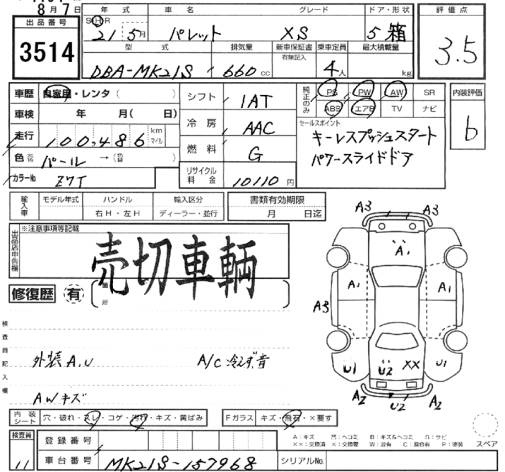 8月7日
出品番号
3514
年式 車名 グレード ドア・形状
S H R 21年5月 パレット XS 5 箱
型式 排気量 新車保証書 乗車定員 最大積載量
有無記入
DBA-MK21S 660cc 4人 kg
評価点
3.5
車歴 自家用・レンタ( )
車検 年 月( )
走行 100,486 km マイル
色 パール →( )
カラーNo Z7T
シフト 1AT
冷房 AAC
燃料 G
リサイクル料金 10110円
純正のみ PS PW AW SR
ABS エアB TV ナビ
セールスポイント
キーレスプッシュスタート
パワースライドドア
内装評価
b
輸入車 モデル年式 ハンドル 輸入区分
右H・左H ディーラー・並行
書類有効期限
月 日迄
※注意事項等記載
売切車輌
修復歴 有
検査員記入欄
外装A,U A/C冷えず 音
AWキズ
A3 A3
A1
A3 A1 A1 A3
U1 U2 XX U1
A2 U2 A2
内装シート 穴・破れ・スレ・コゲ・汚れ・キズ・黄ばみ
Fガラス キズ・飛石・×要す
スペア
検査員 11
登録番号
車台番号 MK21S-157968
シリアルNo.